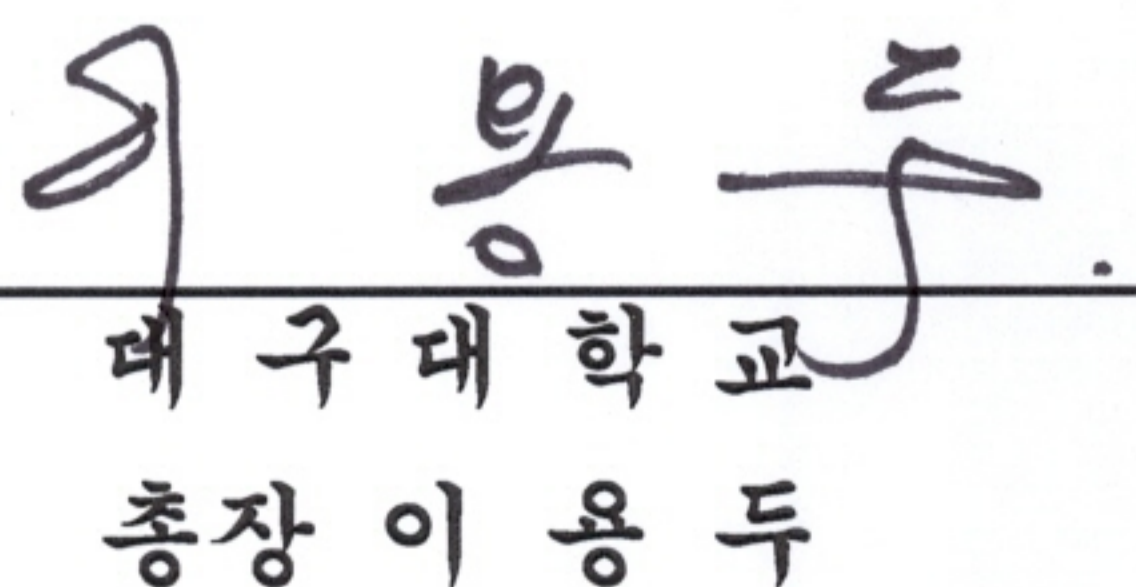 이 용 두 .
대 구 대 학 교
총장 이 용 두